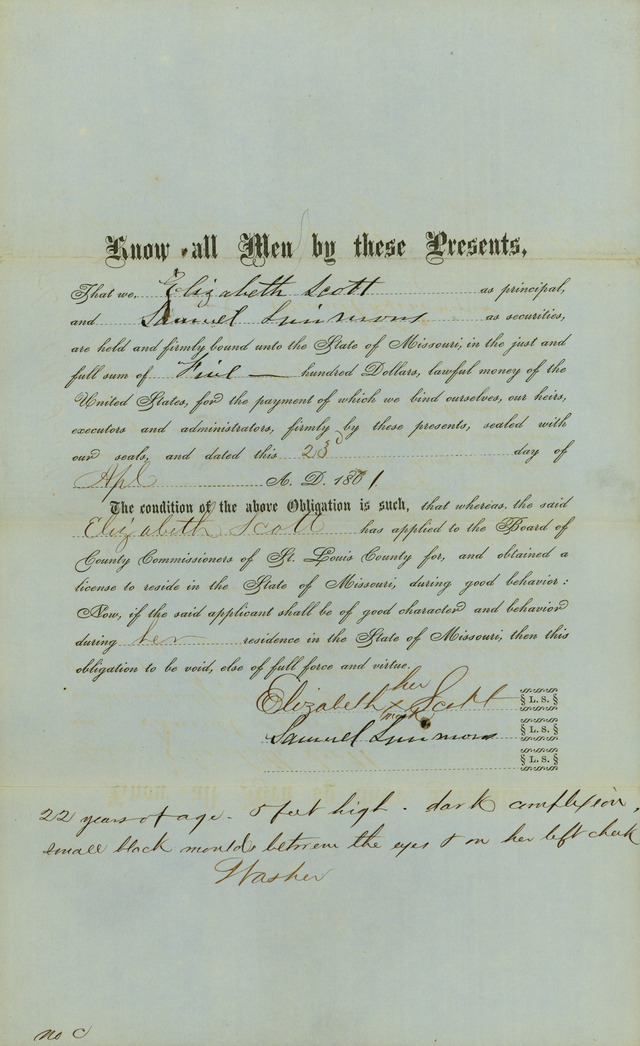 Know all Men by these Presents,
That we, Elizabeth Scott as principal,
and Samuel Simmons as securities,
are held and firmly bound unto the State of Missouri, in the just and
full sum of Five — hundred Dollars, lawful money of the
United States, for the payment of which we bind ourselves, our heirs,
executors and administrators, firmly by these presents, sealed with
our seals, and dated this 23d day of
Apl A. D. 1861.
The condition of the above Obligation is such, that whereas, the said
Elizabeth Scott has applied to the Board of
County Commissioners of St. Louis County for, and obtained a
license to reside in the State of Missouri, during good behavior:
Now, if the said applicant shall be of good character and behavior
during her residence in the State of Missouri, then this
obligation to be void, else of full force and virtue.
her
Elizabeth X Scott L. S.
mark
Samuel Simmons L. S.
L. S.
22 years of age - 5 feet high - dark complexion,
small black moulds between the eyes & on her left cheek
Washer
no C